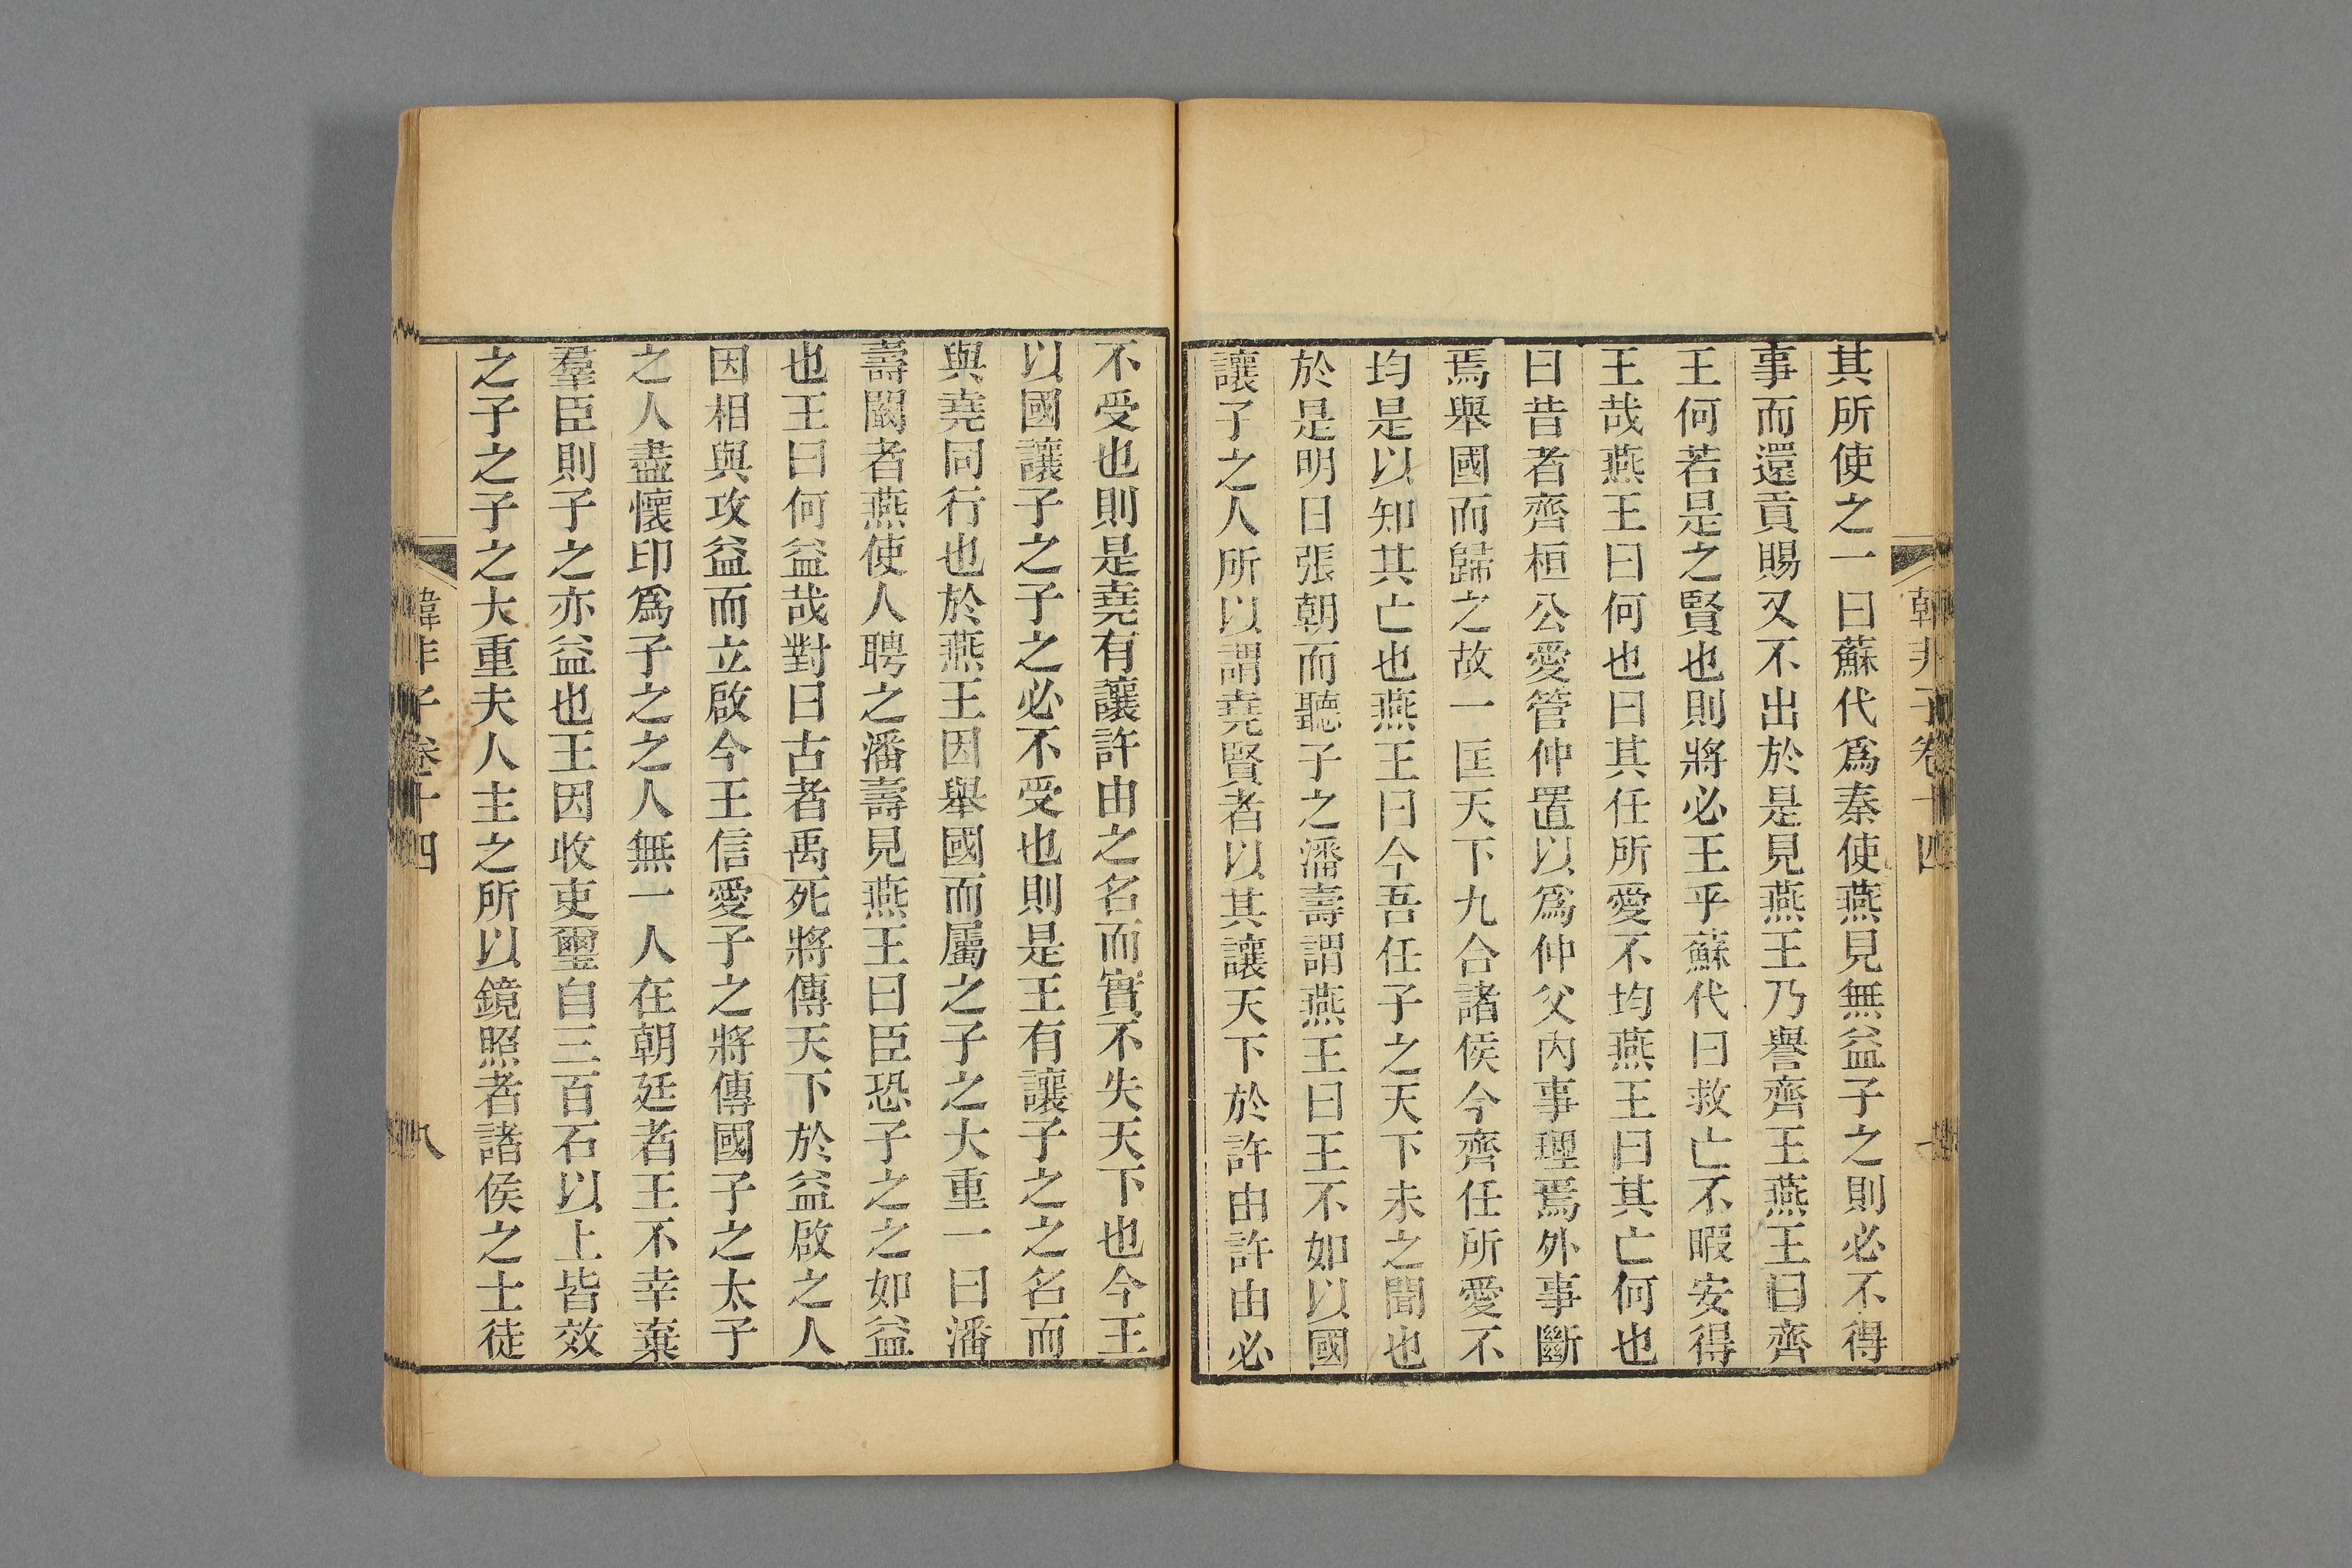 其所使之一曰蘇代爲秦使燕見無益子之則必不得
事而還貢賜又不出於是見燕王乃譽齊王燕王曰齊
王何若是之賢也則將必王乎蘇代曰救亡不暇安得
王哉燕王曰何也曰其任所愛不均燕王曰其亡何也
曰昔者齊桓公愛管仲置以爲仲父內事理焉外事斷
焉舉國而歸之故一匡天下九合諸侯今齊任所愛不
均是以知其亡也燕王曰今吾任子之天下未之聞也
於是明日張朝而聽子之潘壽謂燕王曰王不如以國
讓子之人所以謂堯賢者以其讓天下於許由許由必
不受也則是堯有讓許由之名而實不失天下也今王
以國讓子之子之必不受也則是王有讓子之之名而
與堯同行也於燕王因舉國而屬之子之大重一曰潘
壽闞者燕使人聘之潘壽見燕王曰臣恐子之之如益
也王曰何益哉對曰古者禹死將傳天下於益啟之人
因相與攻益而立啟今王信愛子之將傳國子之太子
之人盡懷印爲子之之人無一人在朝廷者王不幸棄
羣臣則子之亦益也王因收吏璽自三百石以上皆效
之子之子之大重夫人主之所以鏡照者諸侯之士徒
韓非子卷十四
八